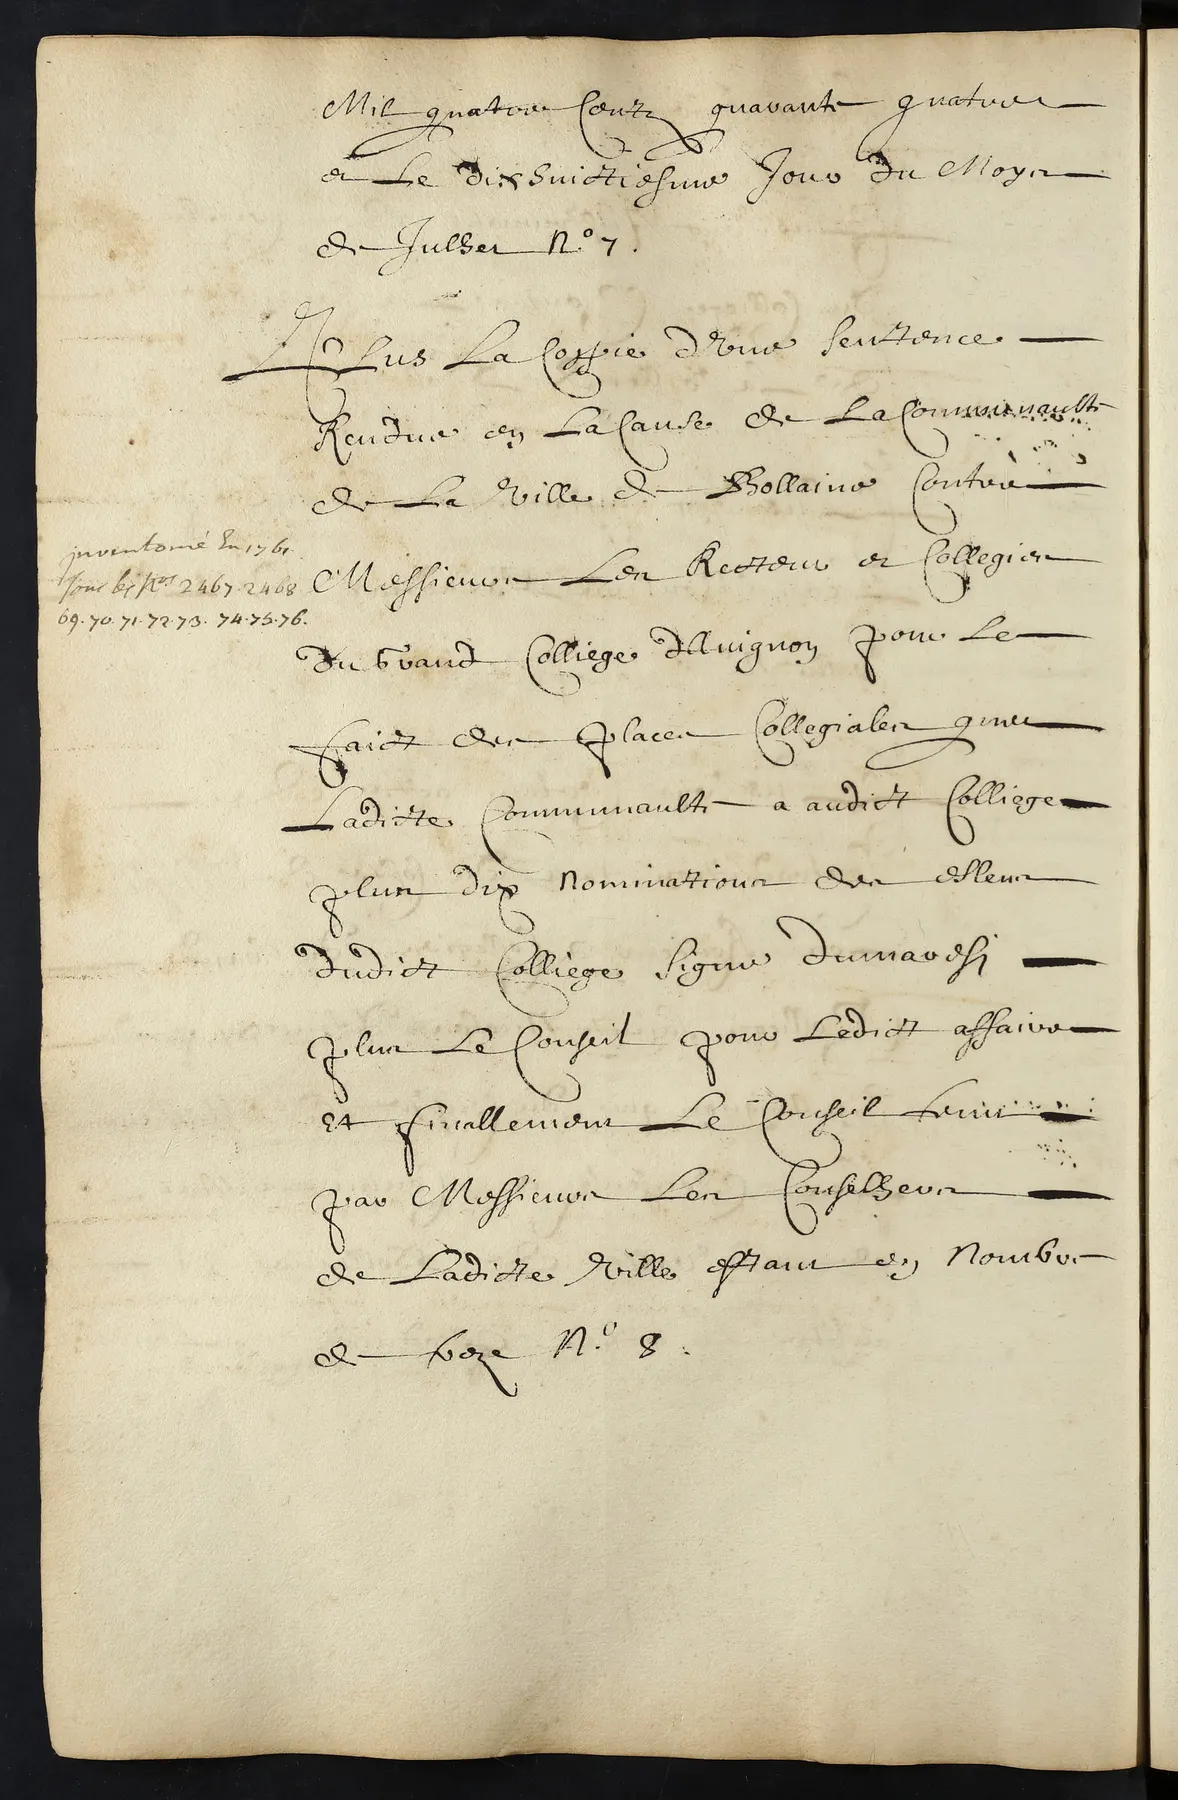 Mil quatre Centz quarante quatre
et Le Dixhuictiesme Jour du Moys
de Julhet N.º 7.
Plus La Coppie d'Une Sentence
Rendue en La Cause de La Communaulté
de La Ville de Bollaine Contre
Messieurs Les Recteur et Collegies
Du Grand Colliege dAuignon pour Le
faict des places Collegiales que
Ladicte Communaulté a audict Colliege
plus dix Nominations des esleus
dudict Colliege Signe Dumaresi
plus Le Conseil pour Ledict affaire
et finallement Le Conseil tenu
par Messieurs Les Conselhers
de Ladicte Ville estant en Nombre
de treze N.º 8.
inventorié En 1761.
sous les Nos 2467. 2468
69. 70. 71. 72. 73. 74. 75. 76.